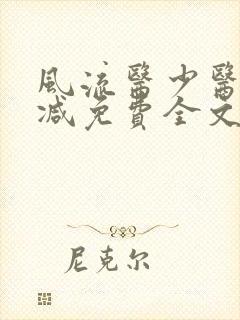 風流醫少醫
减免費全文
尼克尔